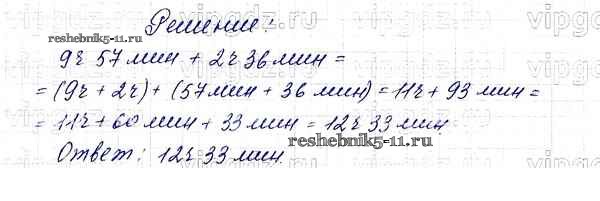 Решение:
reshebnik5-11.ru
9ч 57 мин + 2ч 36 мин =
= (9ч + 2ч) + (57 мин + 36 мин) = 11ч + 93 мин =
= 11ч + 60 мин + 33 мин = 12ч 33 мин.
reshebnik5-11.ru
Ответ: 12ч 33 мин.
vipgdz.ru